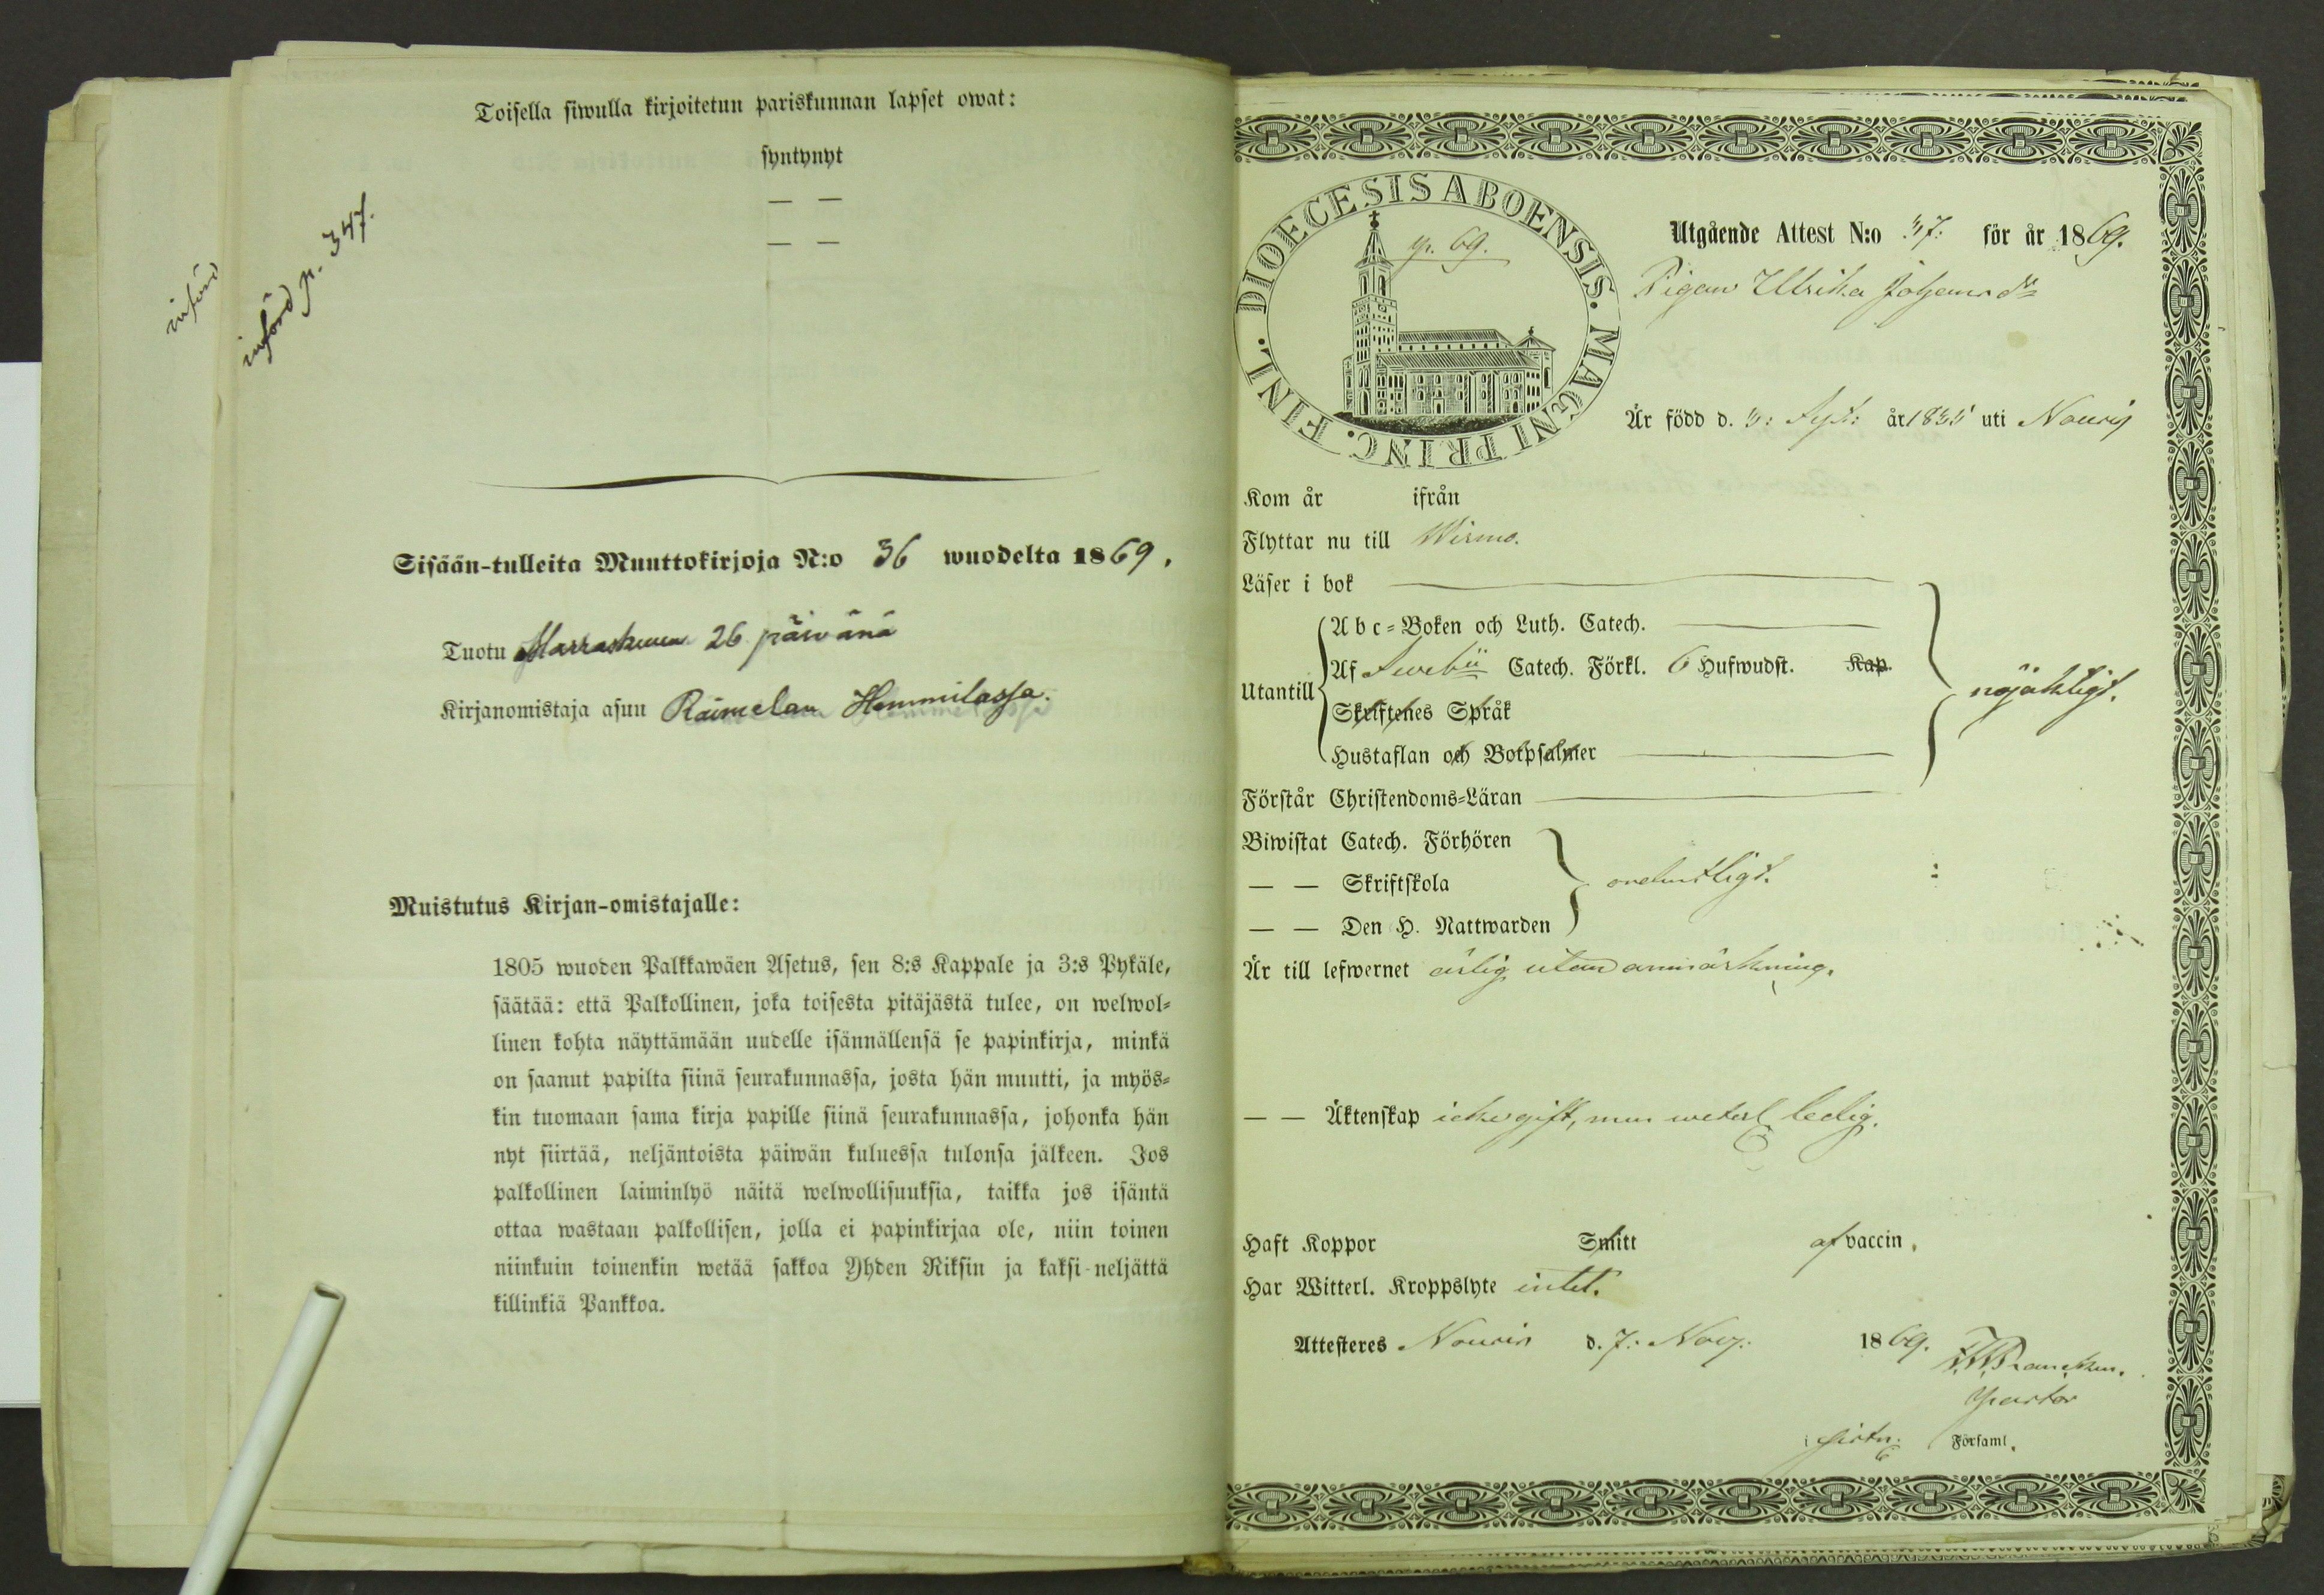 Toisella siwulla kirjoitetun pariskunnan lapset owat:
syntynyt
— —
— —
införd
införd p. 347.
Sisään-tulleita Muuttokirjoja N:o 36 wuodelta 1869.
Tuotu Marraskuun 26 päivänä
Kirjanomistaja asuu Raimelan Hemmilassa.
Muistutus Kirjan-omistajalle:
1805 wuoden Palkkawäen Asetus, sen 8:s Kappale ja 3:s Pykäle,
säätää: että Palkollinen, joka toisesta pitäjästä tulee, on welwol-
linen kohta näyttämään uudelle isännällensä se papinkirja, minkä
on saanut papilta siinä seurakunnassa, josta hän muutti, ja myös-
kin tuomaan sama kirja papille siinä seurakunnassa, johonka hän
nyt siirtää, neljäntoista päiwän kuluessa tulonsa jälkeen. Jos
palkollinen laiminlyö näitä welwollisuuksia, taikka jos isäntä
ottaa wastaan palkollisen, jolla ei papinkirjaa ole, niin toinen
niinkuin toinenkin wetää sakkoa Yhden Riksin ja kaksi neljättä
killinkiä Pankkoa.
DIOECESIS ABOENSIS. MAGNI PRINC. FINL.
p. 69.
Utgående Attest N:o 37. för år 1869.
Pigan Ulrika Johansdr
Är född d. 3: Sept: år 1835 uti Nousis
Kom år ifrån
Flyttar nu till Wirmo.
Läser i bok
Utantill
Abc-Boken och Luth. Catech.
Af Svebii Catech. Förkl. 6 Hufwudst. Kap.
Skriftenes Språk
Hustaflan och Botpsalmer
nöjaktigt.
Förstår Christendoms-Läran
Biwistat Catech. Förhören
— — Skriftskola
— — Den H. Nattwarden
ordentligt.
Är till lefwernet ärlig utan anmärkning.
— — Äktenskap icke gift, men ledig.
Haft Koppor Smitt af vaccin.
Har Witterl. Kroppslyte intet.
Attesteres Nousis d. 7: Nov: 1869.
Pastor
i Församl.